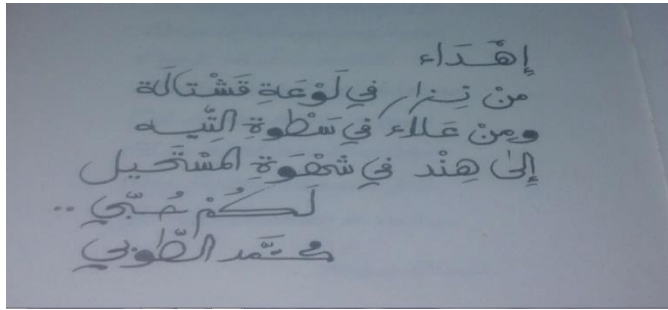 إهْدَاء
مِنْ نِزار في لَوْعَةِ قَشْتالَة
ومِنْ عَلاء في سَطْوةِ التِّيه
إلى هِنْد في شَهْوَةِ المُسْتَحيل
لَكُمْ حُبّي ..
محمَّد الطّوبي